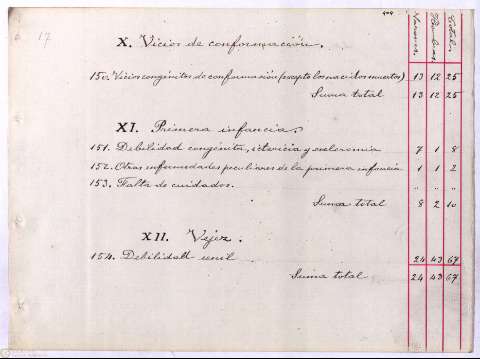 17
Varones. Hembras. Total.
X. Vicios de conformación.
150. Vicios congénitos de conformación (excepto los nacidos muertos) 13 12 25
Suma total 13 12 25
XI. Primera infancia.
151. Debilidad congénita, ictericia y escleroma 7 1 8
152. Otras enfermedades peculiares de la primera infancia 1 1 2
153. Falta de cuidados. " " "
Suma total 8 2 10
XII. Vejez.
154. Debilidad senil 24 43 67
Suma total 24 43 67